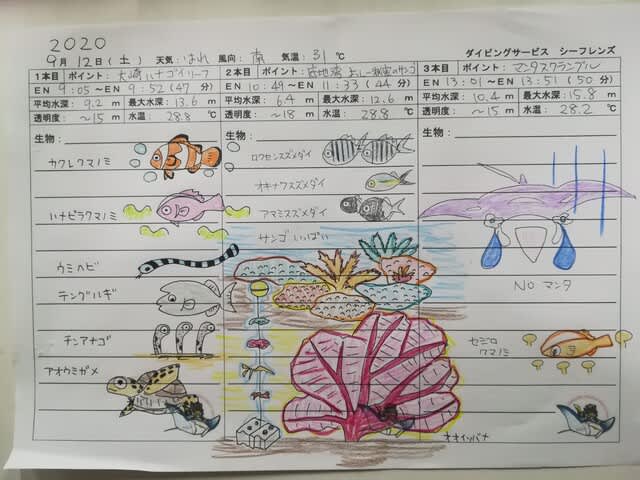 2020
9月12日(土) 天気:はれ 風向:南 気温:31℃ ダイビングサービス シーフレンズ
1本目 ポイント:大崎ハナゴイリーフ
EN 9:05〜EN 9:52(47分)
平均水深:9.2m 最大水深:13.6m
透明度:〜15m 水温:28.8℃
生物:
カクレクマノミ
ハナビラクマノミ
ウミヘビ
テングハギ
チンアナゴ
アオウミガメ
2本目 ポイント:底地湾
EN 10:49〜EN 11:33(44分)
平均水深:6.4m 最大水深:12.6m
透明度:〜18m 水温:28.8℃
生物:
ロクセンスズメダイ
オキナワスズメダイ
アマミスズメダイ
サンゴいっぱい
オオイソバナ
3本目 ポイント:マンタスクランブル
EN 13:01〜EN 13:51(50分)
平均水深:10.4m 最大水深:15.8m
透明度:〜15m 水温:28.2℃
生物:
NO マンタ
セジロ
クマノミ